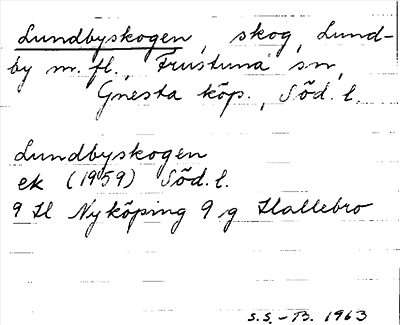 Lundbyskogen, skog, Lund-
by m. fl., Frustuna sn,
Gnesta köp., Söd. l.
Lundbyskogen
ek (1959) Söd. l.
9 H Nyköping 9 g Hallebro
S.S.-B. 1963